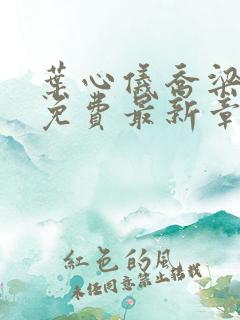 葉心儀喬梁
免費最新章
紅色的風
未經同意禁止轉載